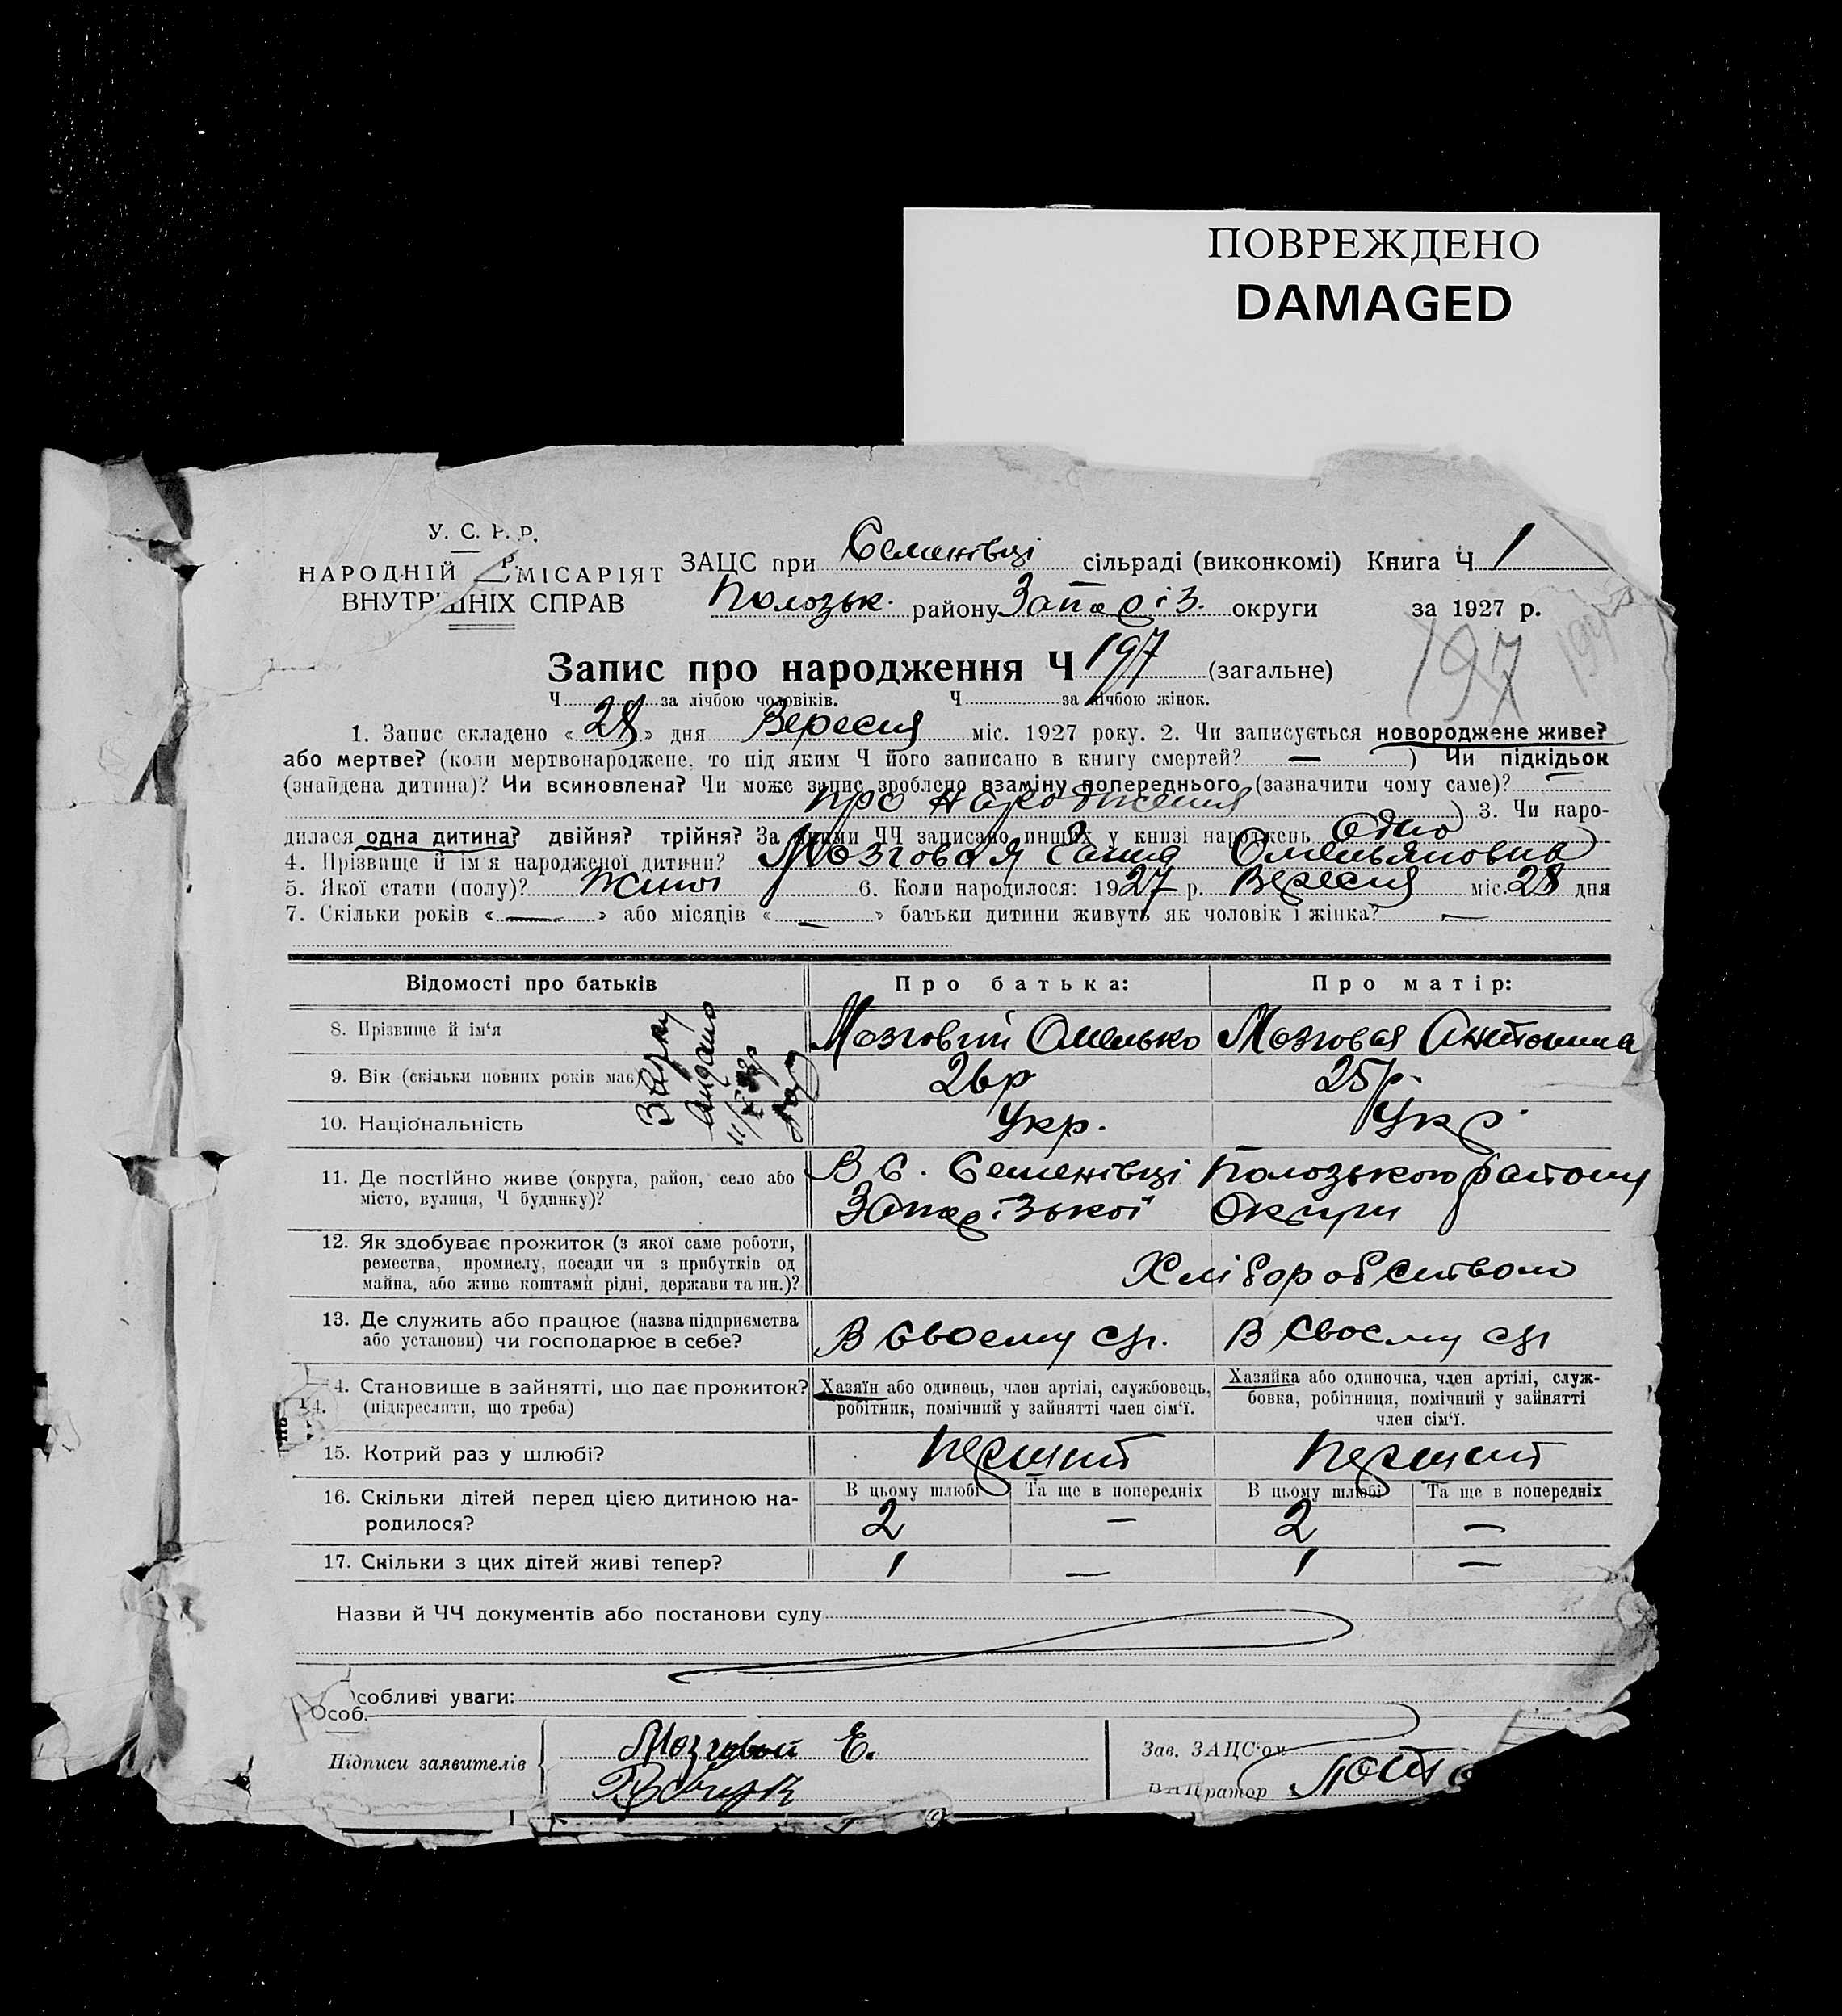 ПОВРЕЖДЕНО
DAMAGED
У. С. Р. Р.
НАРОДНІЙ МІСАРІЯТ
ВНУТРІШНІХ СПРАВ
ЗАЦС при Семенівці сільраді (виконкомі) Книга Ч 1
Полозьк. району Запоріз. округи за 1927 р.
Запис про народження Ч 197 (загальне) 197
Ч за лічбою чоловіків. Ч за лічбою жінок.
1. Запис складено «28» дня Вересня міс. 1927 року. 2. Чи записується новороджене живе?
або мертве? (коли мертвонароджене, то під яким Ч його записано в книгу смертей? — ) Чи підкідьок
(знайдена дитина)? Чи всиновлена? Чи може запис зроблено взаміну попереднього (зазначити чому саме)? —
про народження ) 3. Чи наро-
дилася одна дитина? двійня? трійня? За якими ЧЧ записано инших у книзі народжень Одно )
4. Прізвище й ім'я народженої дитини? Мозговая Омельяновна
5. Якої стати (полу)? жіноч 6. Коли народилося: 1927 р. Вересня міс. 28 дня
7. Скільки років « — » або місяців « — » батьки дитини живуть як чоловік і жінка? —
Відомості про батьків Про батька: Про матір:
8. Прізвище й ім'я Мозговий Омелько Мозговая Антонина
9. Вік (скільки повних років має) 26 р 25 р.
10. Національність Укр. Укр.
11. Де постійно живе (округа, район, село або місто, вулиця, Ч будинку)? В С. Семенівці Полозького району
Запорізької Округи
12. Як здобуває прожиток (з якої саме роботи,
ремества, промислу, посади чи з прибутків од
майна, або живе коштами рідні, держави та ин.)? Хліборобством
13. Де служить або працює (назва підприємства
або установи) чи господарює в себе? В своему с/г. В своему с/г
14. Становище в зайнятті, що дає прожиток?
(підкреслити, що треба)
Хазяїн або одинець, член артілі, службовець,
робітник, помічний у зайнятті член сім'ї.
Хазяйка або одиночка, член артілі, служ-
бовка, робітниця, помічний у зайнятті
член сім'ї.
15. Котрий раз у шлюбі? Перший Перший
16. Скільки дітей перед цією дитиною на-
родилося?
В цьому шлюбі Та ще в попередніх В цьому шлюбі Та ще в попередніх
2 — 2 —
17. Скільки з цих дітей живі тепер? 1 — 1 —
Назви й ЧЧ документів або постанови суду
Особливі уваги:
Особ.
Підписи заявителів Мозговой Е.
Зав. ЗАЦС'ом